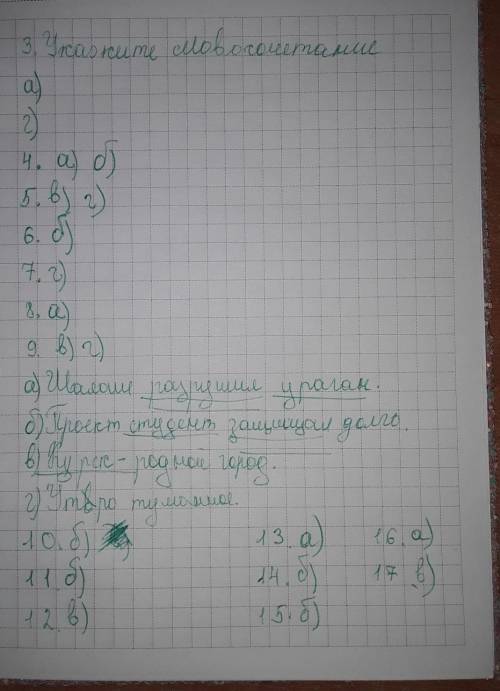 3. Укажите словосочетание
а)
г)
4. а) б)
5. в) г)
6. б)
7. г)
8. а)
9. в) г)
а) Шалаши разрушил ураган.
б) Проект студент защищал долго.
в) Курск - родной город.
г) Утро туманное.
10. б)
11. б)
12. в)
13. а)
14. б)
15. б)
16. а)
17. в)